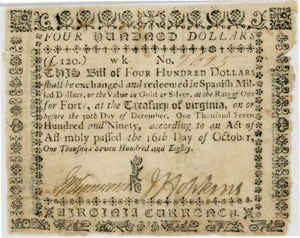 FOUR HUNDRED DOLLARS
(£.120.) wk. No. 7695
THIS Bill of FOUR HUNDRED DOLLARS
shall be exchanged and redeemed in Spanish Mil-
led Dollars, or the Value in Gold or Silver, at the Rate of One
for Forty, at the Treasury of Virginia, on or
before the 30th Day of December, One Thousand Seven
Hundred and Ninety, according to an Act of
Assembly passed the 16th Day of October,
One Thousand Seven Hundred and Eighty.
J Hopkins
VIRGINIA CURRENCY.